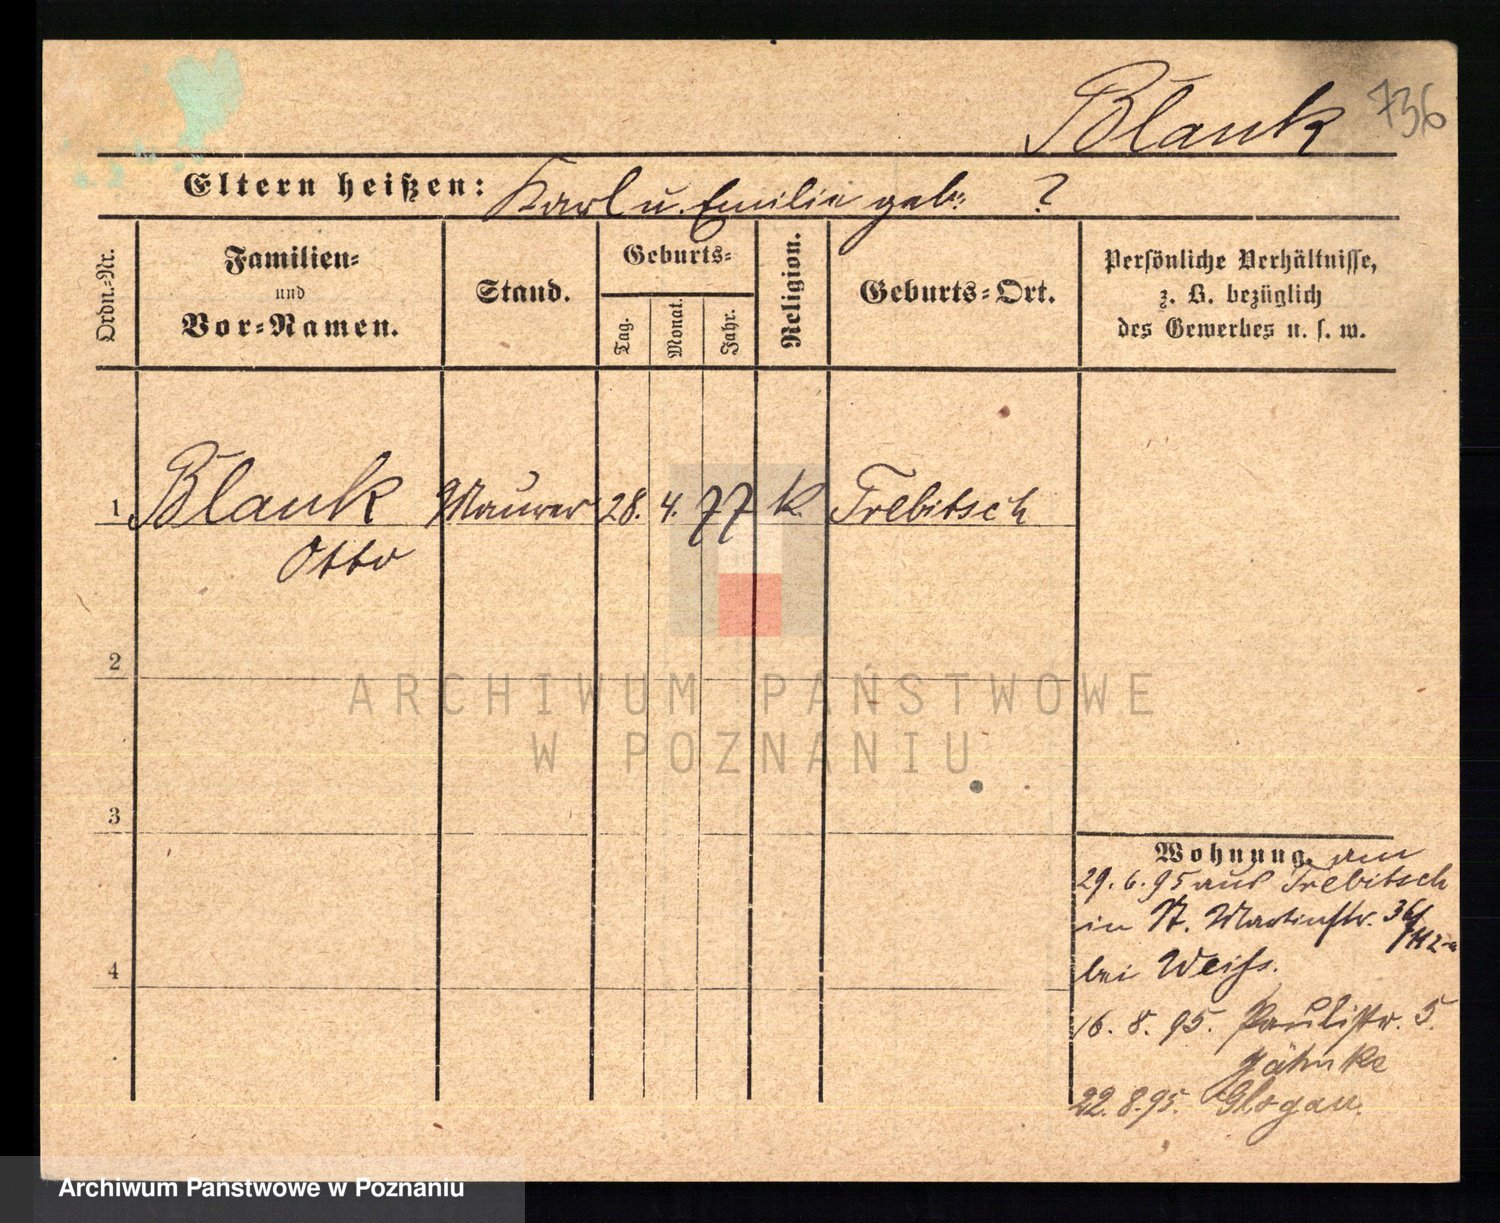 Blank
736
Eltern heißen: Karl u. Emilie geb: ?
Ordn.-Nr.
Familien-
und
Vor-Namen.
Stand.
Geburts-
Tag.
Monat.
Jahr.
Religion.
Geburts-Ort.
Persönliche Verhältnisse,
z. B. bezüglich
des Gewerbes u. s. w.
1 Blank Maurer 28. 4. 77 k. Trebitsch
Otto
2
3
4
Wohnung. am
29. 6. 95 aus Trebitsch
in St. Martinstr. 36/
bei Weiss.
16. 8. 95. Paulistr. 5.
Jähnke
22. 8. 95. Glogau.
ARCHIWUM PAŃSTWOWE
W POZNANIU
Archiwum Państwowe w Poznaniu